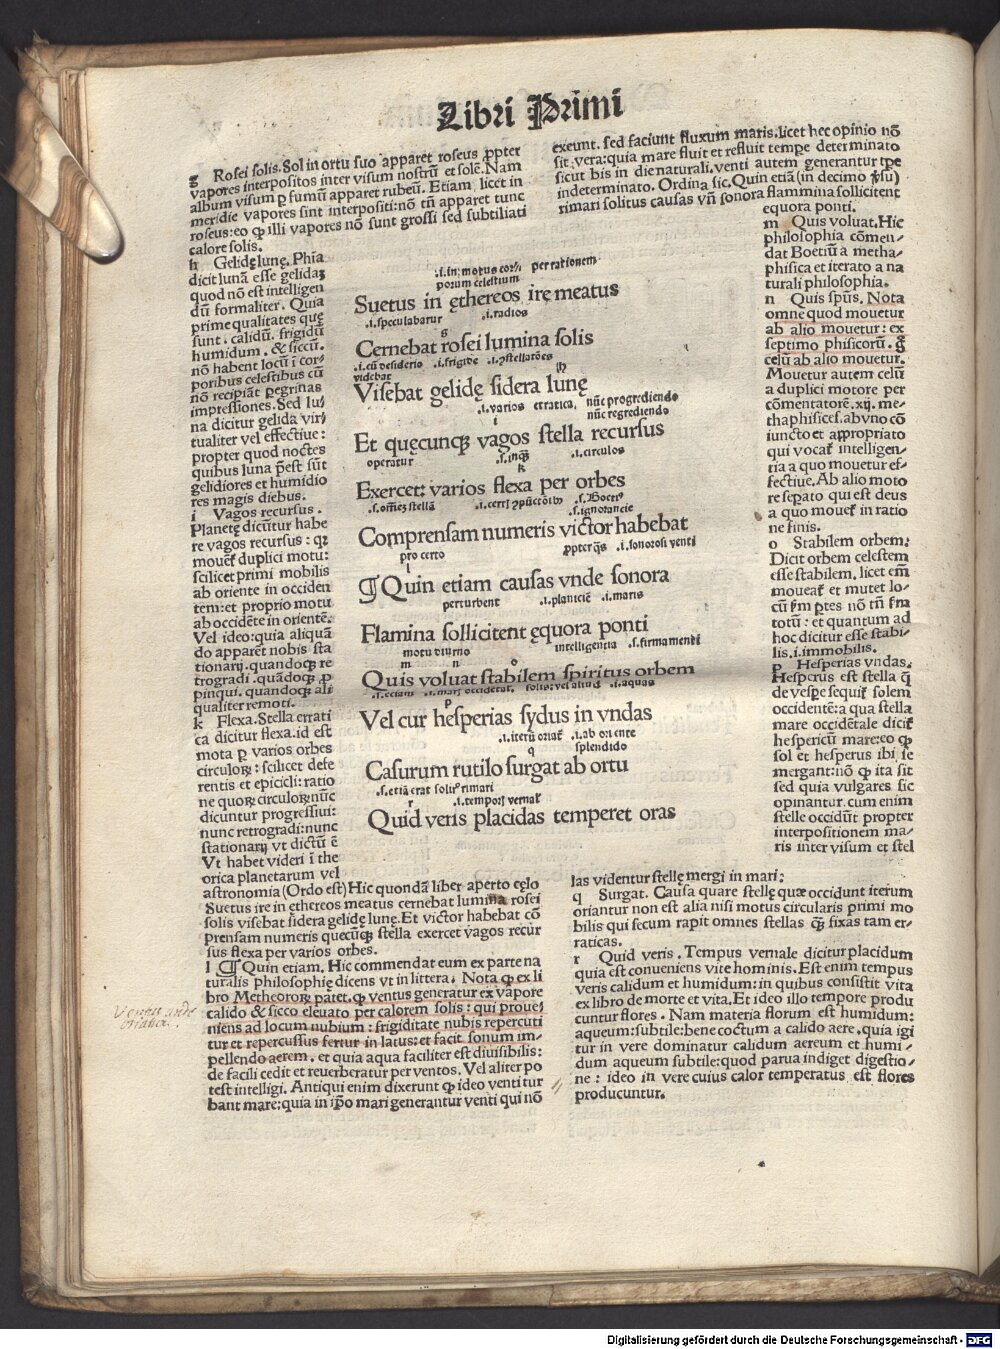 Libri Primi
g Rosei solis. Sol in ortu suo apparet roseus ꝓpter
vapores interpositos inter visum nostrū et solē. Nam
album visum ꝑ fumū apparet rubeū. Etiam licet in
meridie vapores sint interpositi: nō tn̄ apparet tunc
roseus: eo ꝙ illi vapores nō sunt grossi sed subtiliati
calore solis.
h Gelidę lunę. Phia
dicit lunā esse gelidaꝫ
quod nō est intelligen
dū formaliter. Quia
prime qualitates quę
sunt. calidū. frigidū
humidum. & siccū.
nō habent locū ī cor/
poribus celestibus cū
nō recipiāt ꝑegrinas
impressiones. Sed lu/
na dicitur gelida vir/
tualiter vel effectiue:
propter quod noctes
quibus luna p̄est sūt
gelidiores et humidio
res magis diebus.
i Vagos recursus.
Planetę dicūtur habe
re vagos recursus: qꝫ
mouēt duplici motu:
scilicet primi mobilis
ab oriente in occiden
tem: et proprio motu
ab occidēte in orientē.
Vel ideo: quia aliquā
do apparet nobis sta
tionarij. quandoqꝫ re
trogradi. quādoqꝫ ꝓ
pinqui. quandoqꝫ ali
qualiter remoti.
k Flexa. Stella errati
ca dicitur flexa. id est
mota ꝑ varios orbes
circuloꝝ: scilicet defe
rentis et epicicli: ratio
ne quoꝝ circuloꝝ nūc
dicuntur progressiui:
nunc retrogradi: nunc
stationarij vt dictū ē
Vt habet videri ī the
orica planetarum vel
astronomia (Ordo est) Hic quondā liber aperto cęlo
Suetus ire in ethereos meatus cernebat lumina rosei
solis visebat sidera gelidę lunę. Et victor habebat cō
prensam numeris quecūqꝫ stella exercet vagos recur
sus flexa per varios orbes.
l ¶ Quin etiam. Hic commendat eum ex parte na
turalis philosophię dicens vt in littera. Nota ꝙ ex li
bro Metheoroꝝ patet. ꝙ ventus generatur ex vapore
calido & sicco eleuato per calorem solis: qui proue/
niens ad locum nubium: frigiditate nubis repercuti
tur et repercussus fertur in latus: et facit sonum im/
pellendo aerem. et quia aqua faciliter est diuisibilis:
de facili cedit et reuerberatur per ventos. Vel aliter po
test intelligi. Antiqui enim dixerunt ꝙ ideo venti tur
bant mare: quia in ip̄o mari generantur venti qui nō
.i. in: motus corꝑ per rationem
porum celestium
Suetus in ęthereos irę meatus
.i. speculabatur .i. radios
g
Cernebat rosei lumina solis
.i. cū desiderio .i. frigide .i. ꝯstellatiōes
videbat h
Visebat gelidę sidera lunę
.i. varios erratica, nūc progrediendo
i nūc regrediendo
Et quęcunqꝫ vagos stella recursus
operatur .s. inqꝫ .i. circulos
k
Exercet: varios flexa per orbes
.s. omēs stellā .s. Boetiꝰ
.s. ignorancie
Comprensam numeris victor habebat
pro certo ꝓpter qd̄s .i. sonorosi venti
l
¶ Quin etiam causas vnde sonora
perturbent .i. planiciē .i. maris
Flamina sollicitent ęquora ponti
motu diurno intelligentia .s. firmamenti
m n o
Quis voluat stabilem spiritus orbem
.i. aquas
p
Vel cur hesperias sydus in vndas
.i. iterū oriat̃ .i. ab oriente
q splendido
Casurum rutilo surgat ab ortu
.s. etiā erat solitꝰ rimari
r .i. temporꝭ vernal̃
Quid veris placidas temperet oras
exeunt. sed faciunt fluxum maris. licet hec opinio nō
sit vera: quia mare fluit et refluit tempe determinato
sicut bis in die naturali. venti autem generantur tꝑe
indeterminato. Ordina sic. Quin etiā (in decimo ꝟsu)
rimari solitus causas vn̄ sonora flammina sollicitent
equora ponti.
m Quis voluat. Hic
philosophia cōmen/
dat Boetiū a metha/
phisica et iterato a na
turali philosophia.
n Quis spūs. Nota
omne quod mouetur
ab alio mouetur: ex
septimo phisicorū. g̊
celū ab alio mouetur.
Mouetur autem celū
a duplici motore per
cōmentatorē. xij. me/
thaphisices. ab vno cō
iuncto et appropriato
qui vocat̃ intelligen/
tia a quo mouetur ef/
fectiue. Ab alio moto
re sepato qui est deus
a quo mouet̃ in ratio
ne finis.
o Stabilem orbem.
Dicit orbem celestem
esse stabilem, licet em̄
moueat̃ et mutet lo/
cū ẜm ꝑtes nō tn̄ ẜm
totū: et quantum ad
hoc dicitur esse stabi/
lis. i. immobilis.
p Hesperias vndas.
Hesperus est stella q̄
de vespe sequit̃ solem
occidentē: a qua stella
mare occidētale dicit̃
hespericū mare: eo ꝙ
sol et hesperus ibi se
mergant: nō ꝙ ita sit
sed quia vulgares sic
opinantur. cum enim
stelle occidūt propter
interpositionem ma/
ris inter visum et stel
las videntur stellę mergi in mari:
q Surgat. Causa quare stellę quæ occidunt iterum
oriantur non est alia nisi motus circularis primi mo
bilis qui secum rapit omnes stellas qꝫ fixas tam er/
raticas.
r Quid veris. Tempus vernale dicitur placidum
quia est conueniens vite hominis. Est enim tempus
veris calidum et humidum: in quibus consistit vita
ex libro de morte et vita. Et ideo illo tempore produ
cuntur flores. Nam materia florum est humidum:
aqueum: subtile: bene coctum a calido aere. quia igi
tur in vere dominatur calidum aereum et humi/
dum aqueum subtile: quod parua indiget digestio/
ne: ideo in vere cuius calor temperatus est flores
producuntur.
Ventus unde
oriatur.
Digitalisierung gefördert durch die Deutsche Forschungsgemeinschaft - DFG